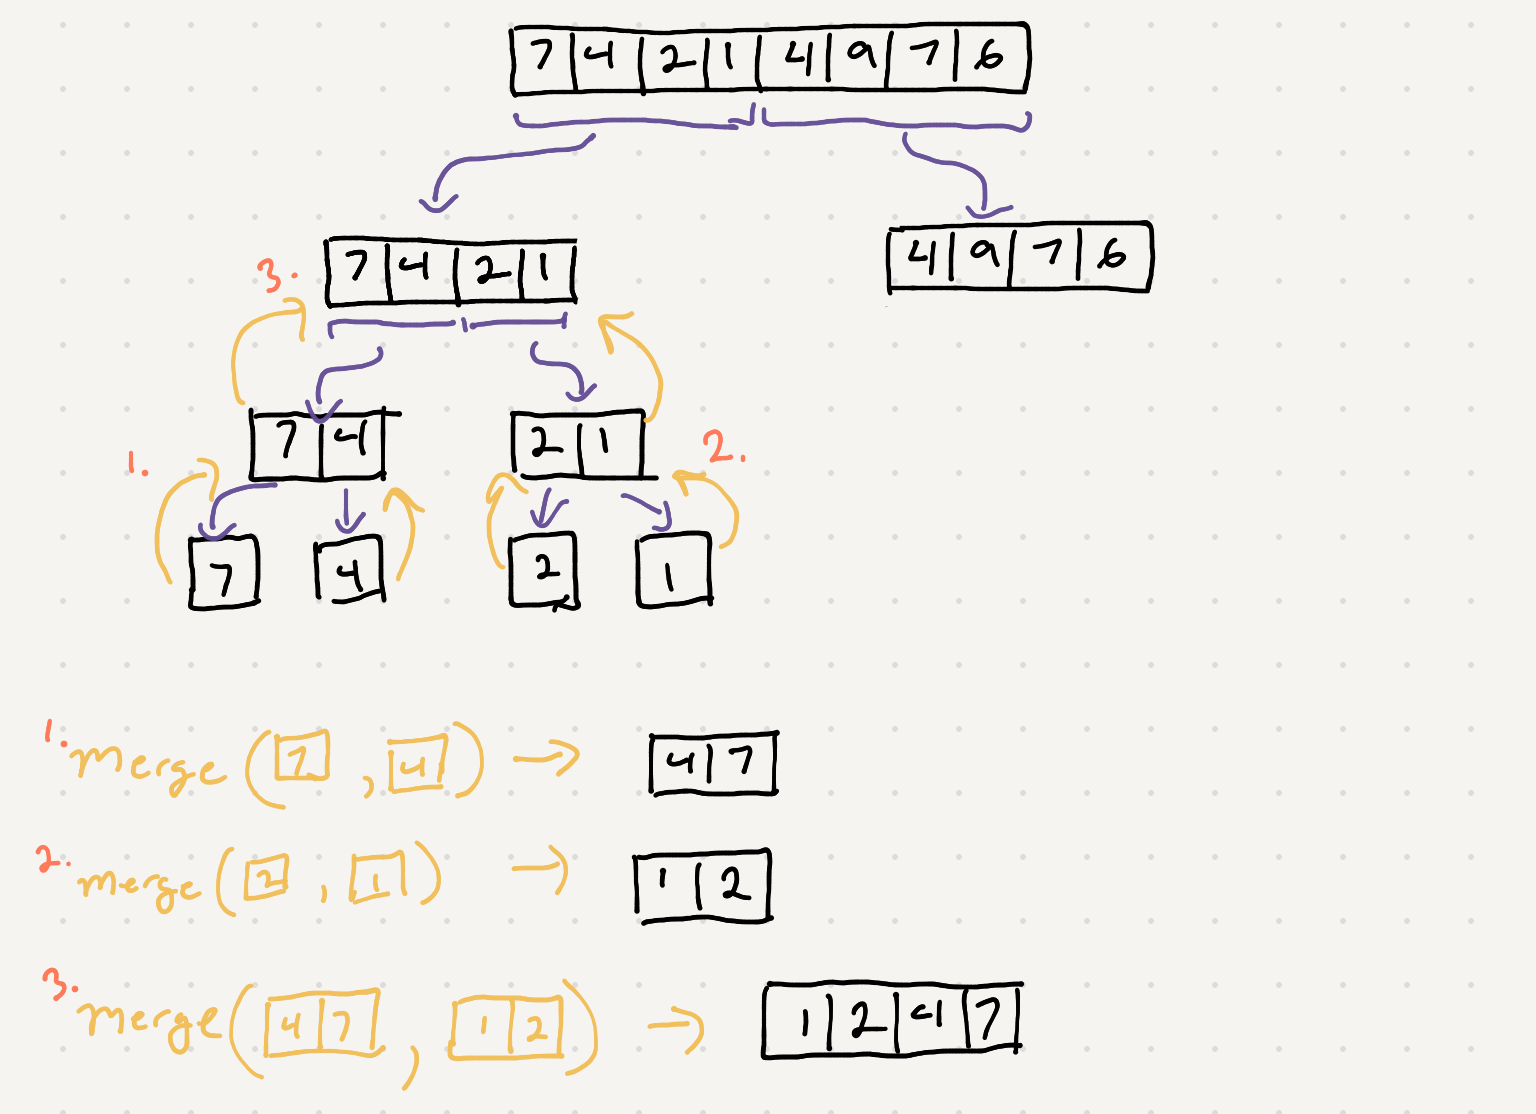 7 4 2 1 4 9 7 6
3. 7 4 2 1
4 9 7 6
1. 7 4
2 1 2.
7 4 2 1
1. merge ( 7 , 4 ) → 4 7
2. merge ( 2 , 1 ) → 1 2
3. merge ( 4 7 , 1 2 ) → 1 2 4 7